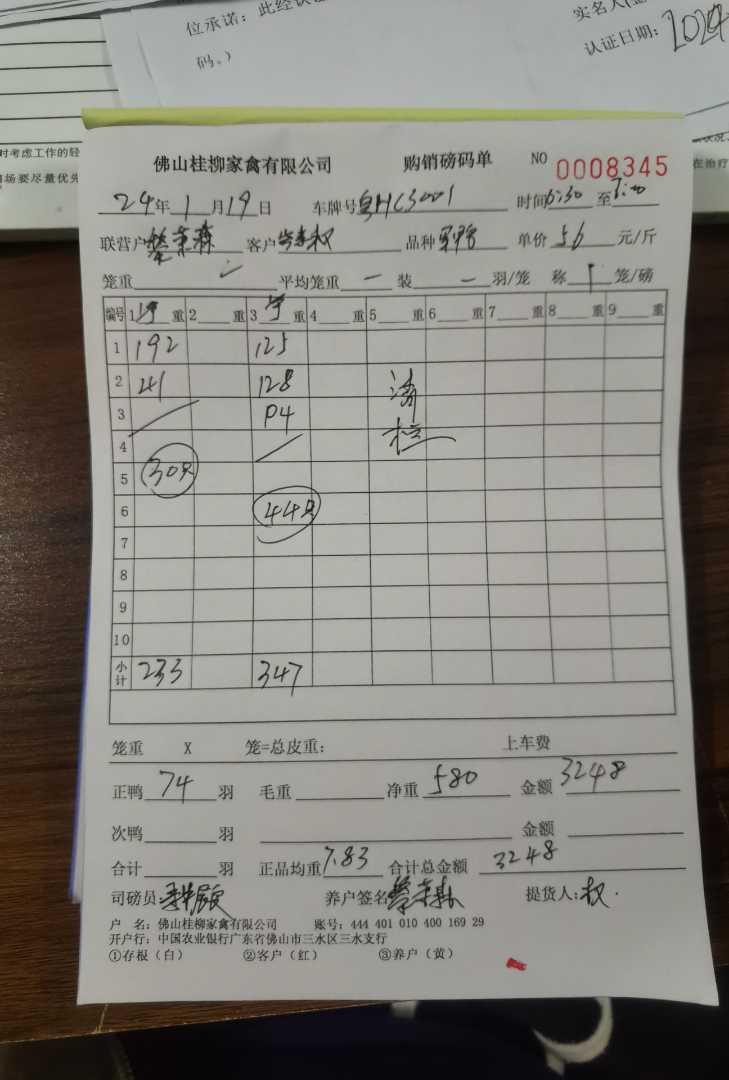 位承诺：此经认
码。）
实名人
认证日期：2024
时考虑工作的轻
场要尽量优先
在治疗
佛山桂柳家禽有限公司 购销磅码单 NO 0008345
24年1月19日 车牌号 时间6:30至7:00
联营户 客户 品种 单价56元/斤
笼重 平均笼重 一 装 一 羽/笼 称 1 笼/磅
编号 1 重 2 重 3 重 4 重 5 重 6 重 7 重 8 重 9 重
1 192 125
2 41 128 清
3 P4 栏
4
5 30只
6 44只
7
8
9
10
小计 233 347
笼重 X 笼=总皮重： 上车费
正鸭 74 羽 毛重 净重 580 金额 3248
次鸭 羽 金额
合计 羽 正品均重 7.83 合计总金额 3248
司磅员 养户签名 提货人：权.
户 名：佛山桂柳家禽有限公司 账号：444 401 010 400 169 29
开户行：中国农业银行广东省佛山市三水区三水支行
①存根（白） ②客户（红） ③养户（黄）